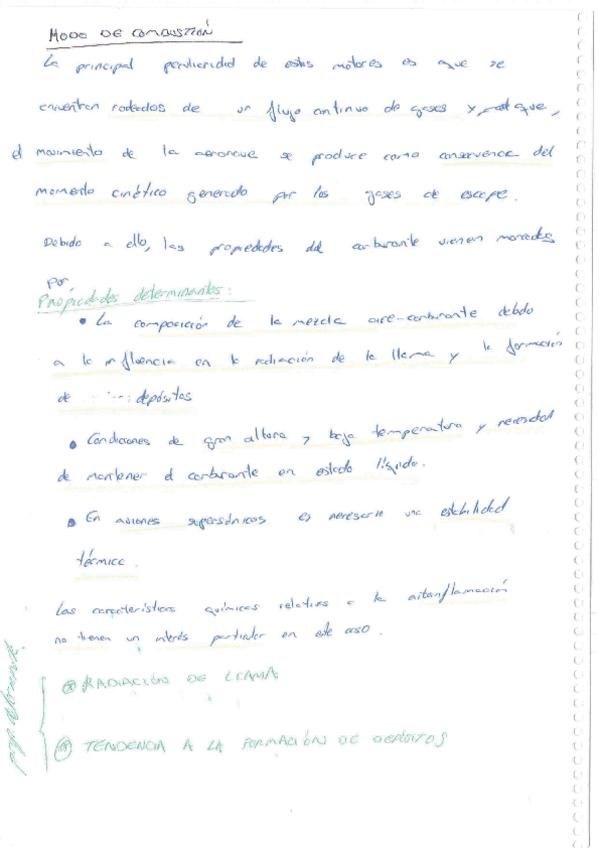 MODO DE COMBUSTIÓN
La principal peculiaridad de estos motores es que se
encuentran rodeados de un flujo continuo de gases y que,
el movimiento de la aeronave se produce como consecuencia del
momento cinético generado por los gases de escape.
Debido a ello, las propiedades del carburante vienen marcadas
por
Propiedades determinantes:
• La composición de la mezcla aire-carburante debido
a la influencia en la radiación de la llama y la formación
de depósitos
• Condiciones de gran altura y baja temperatura y necesidad
de mantener el carburante en estado líquido.
• En aviones supersónicos es necesaria una estabilidad
térmica.
Las características químicas relativas a la autoinflamación
no tienen un interés particular en este caso.
RADIACIÓN DE LLAMA
TENDENCIA A LA FORMACIÓN DE DEPÓSITOS